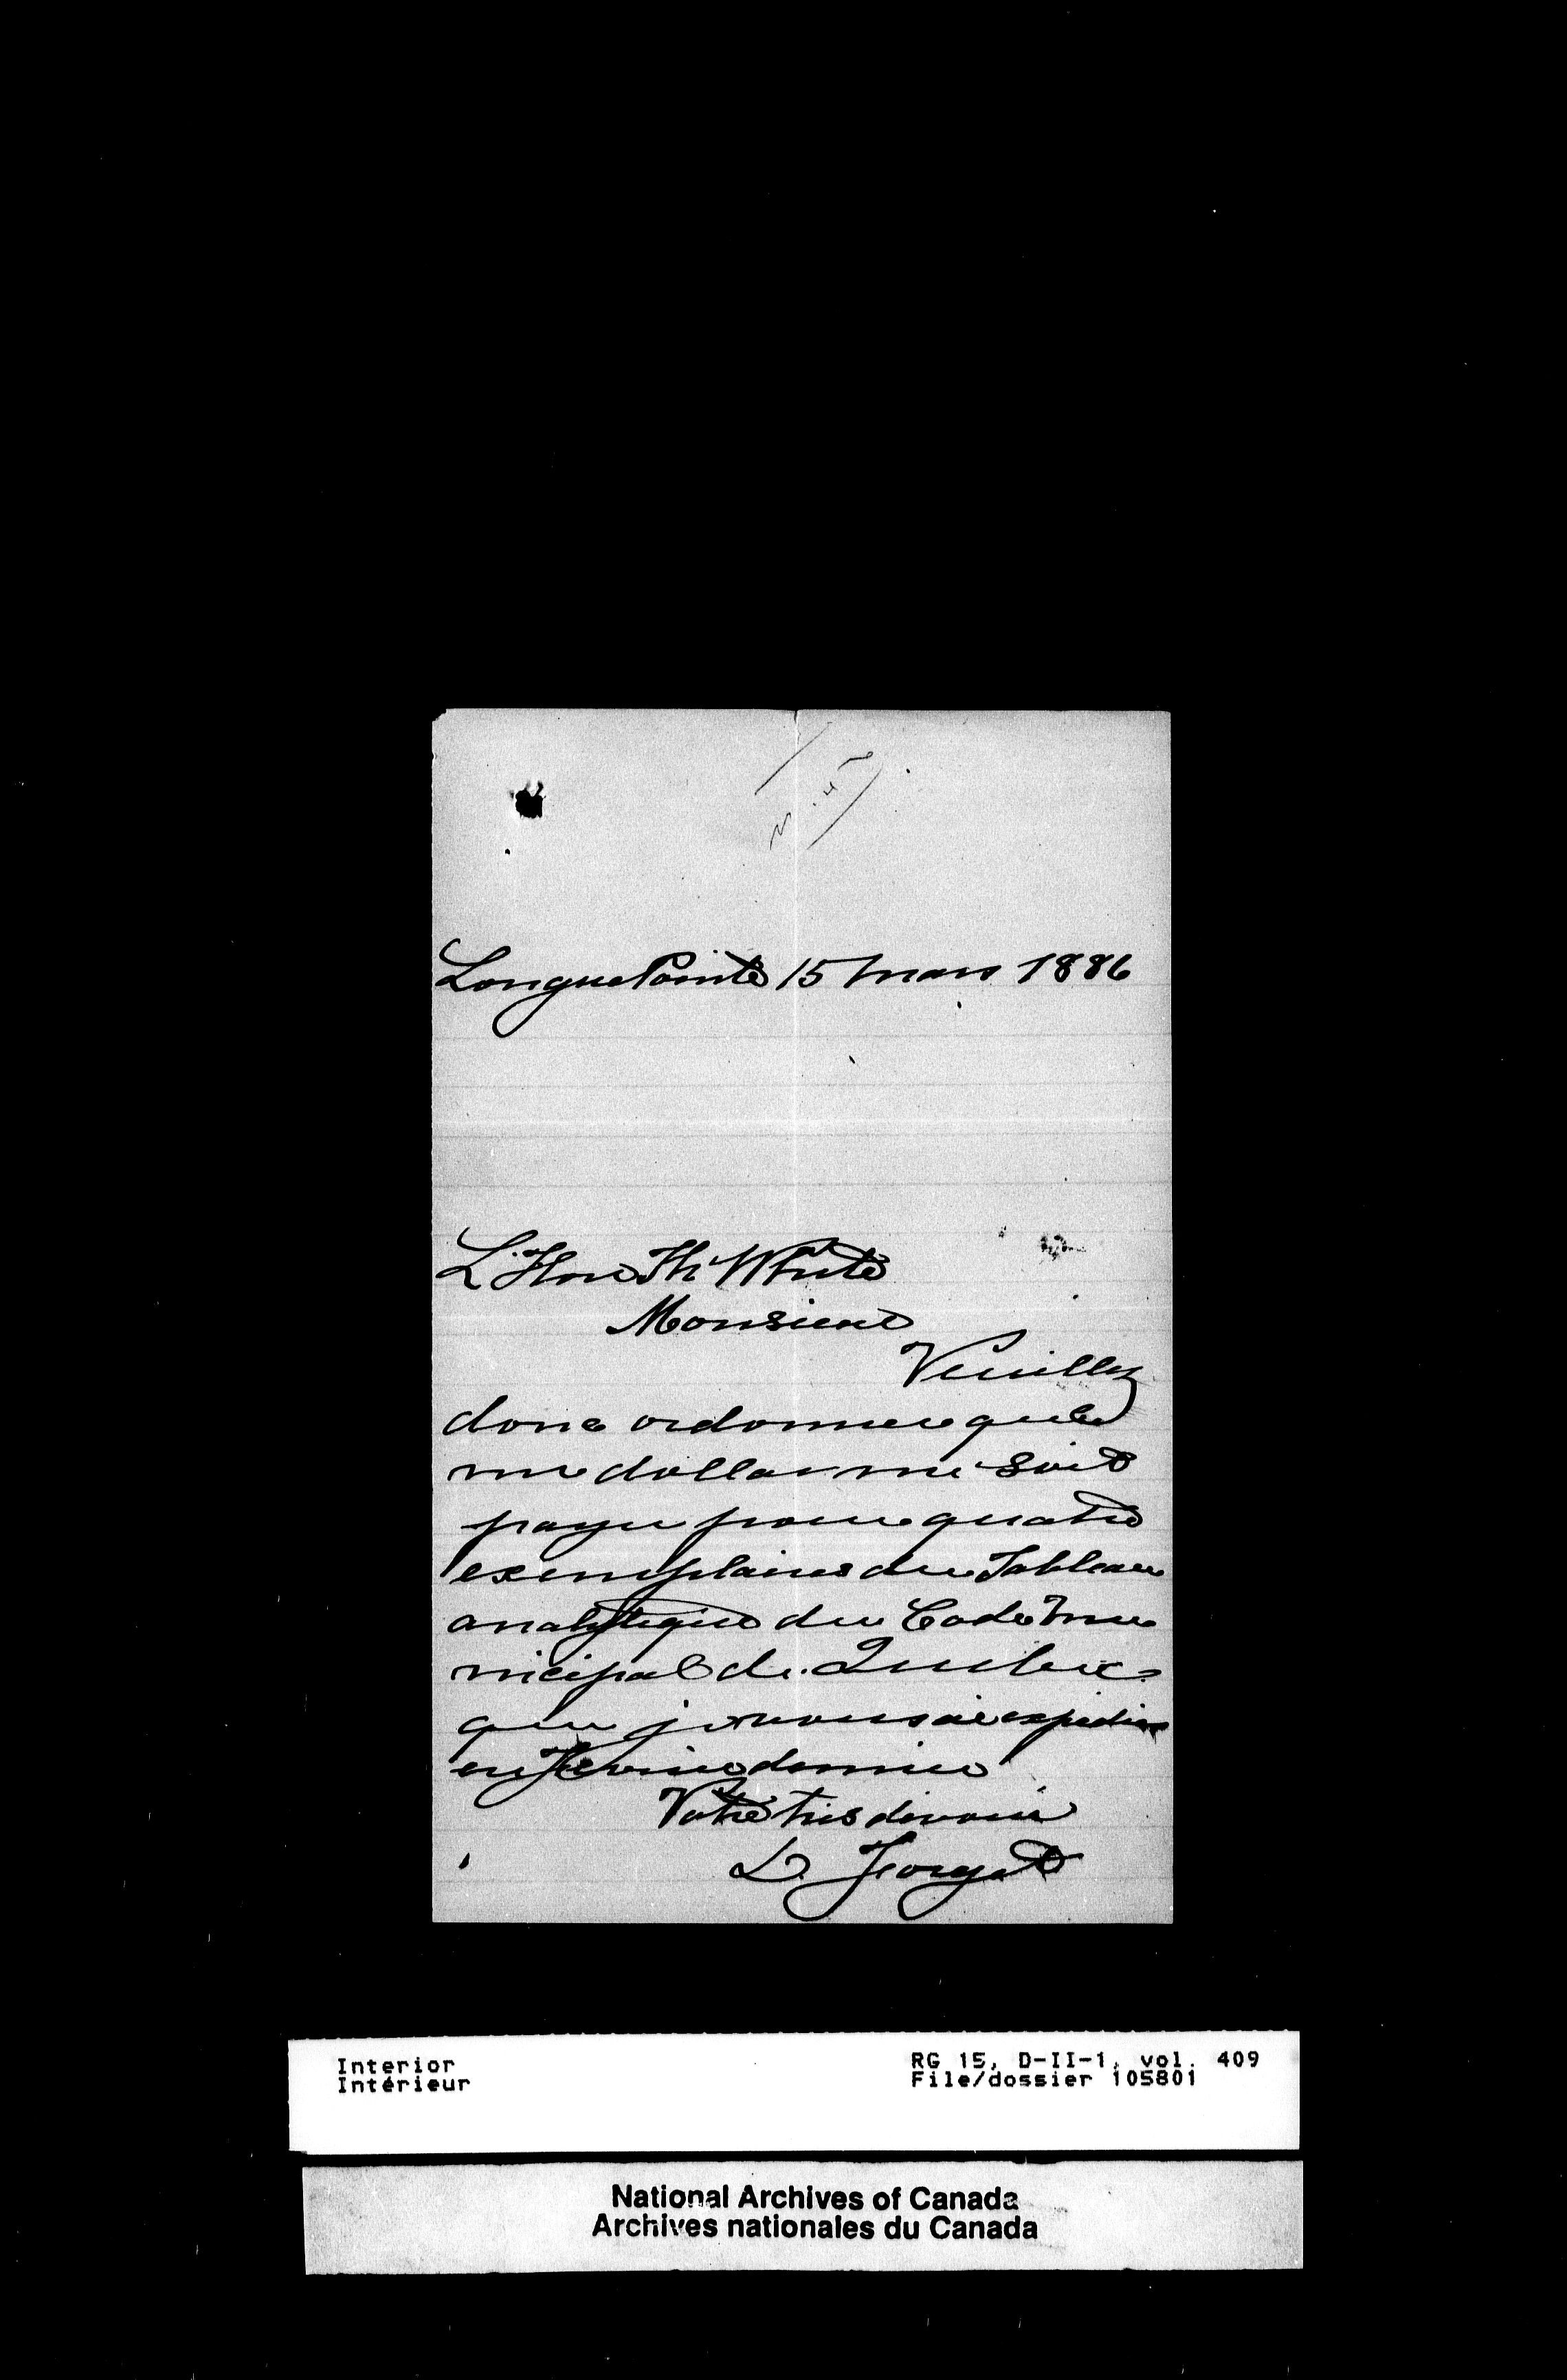 Longue Pointe 15 mars 1886
L'Hon Th White
Monsieur
Veuillez
donc ordonner que le
un dollar me soit
payé pour quatre
exemplaires du Tableau
analytique du Code Mu
nicipal de Québec
que je vous ai expédiés
en février dernier
Votre très dévoué
L. Forget
Interior
Intérieur
RG 15, D-II-1, vol. 409
File/dossier 105801
National Archives of Canada
Archives nationales du Canada